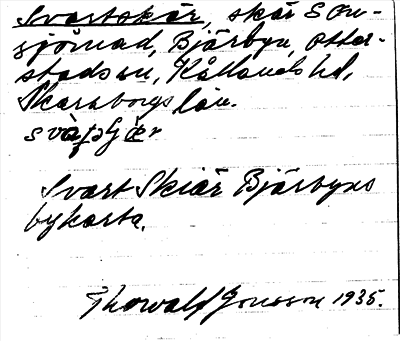 Svartskär, skär S Om-
sjömad, Bjärbyn, Otter-
stads sn, Kållands hd,
Skaraborgs län.
Svart Skiär Bjärbyns
bykarta.
Thorvald Jonsson 1935.